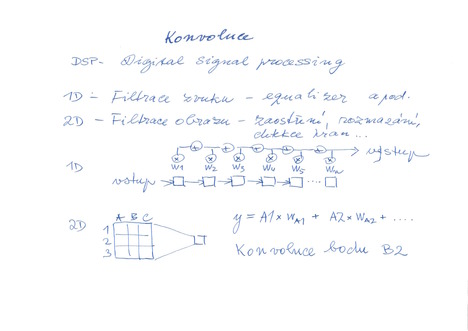 Konvoluce
DSP - Digital signal processing
1D - Filtrace zvuku - equalizer apod.
2D - Filtrace obrazu - zaostření, rozmazání,
detekce hran...
+ + + + + výstup
x x x x x x
1D w1 w2 w3 w4 w5 wn
vstup ...
2D A B C
1
2
3
y = A1 x wA1 + A2 x wA2 + ....
Konvoluce bodu B2